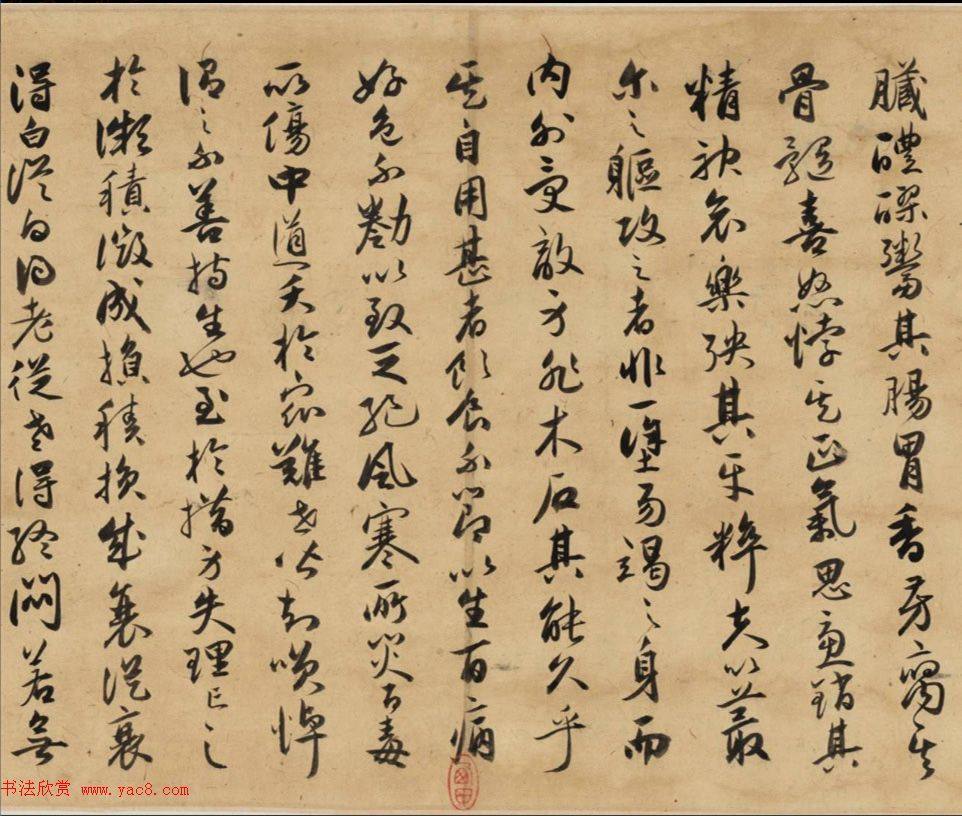 臟醴醪鬻其腸胃香芳腐其
骨髓喜怒悖其正氣思慮銷其
精神哀樂殃其平粹夫以蕞
尒之軀攻之者非一塗易竭之身而
内外受敵身非木石其能久乎
其自用甚者飲食不節以生百病
好色不勌以致乏絶風寒所災百毒
所傷中道夭於衆難世皆知咲悼
謂之不善持生也至於措身失理亡之
於微積微成損積損成衰從衰
得白從白得老從老得終悶若無
书法欣赏 www.yac8.com